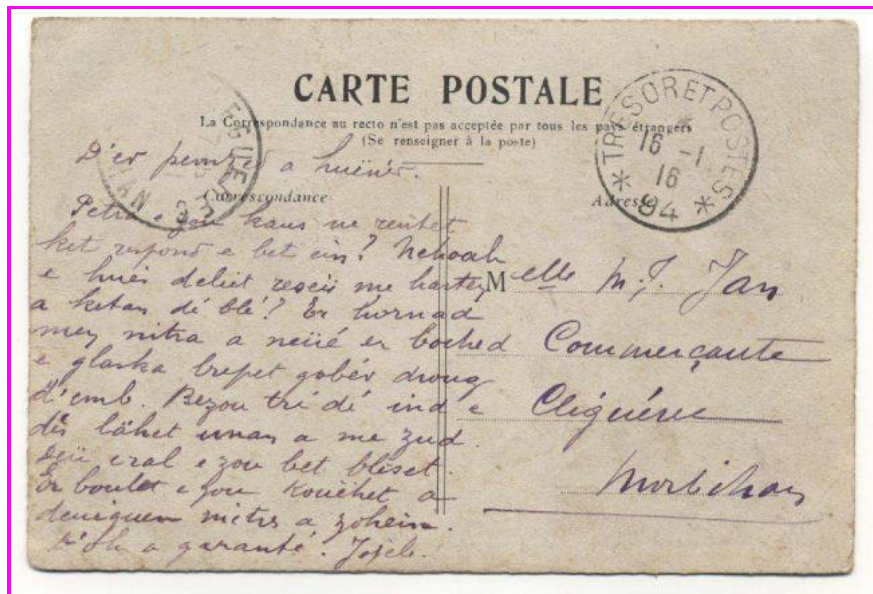 CARTE POSTALE
La Correspondance au recto n'est pas acceptée par tous les pays étrangers
(Se renseigner à la poste)
TRESOR ET POSTES
16 -1
16
* 94 *
D'er a
Correspondance
Adresse
Petra e kaus ne rentet
ket respond e bet ein? Nehoah
e hues deliet me harten
a ketan dé blé? Er kornad
men nitra a neüé er boched
e glaska bepet gobér droug
d'emb. Bezou tri dé ind e
dès lâhet unan a me zud
deü eral e zou bet bleset.
Er boulet e zou kouéhet a
metrs a
D'oh a garanté. Jojeb.
Melle M. J. Jan
Commerçante
Cléguérec
Morbihan